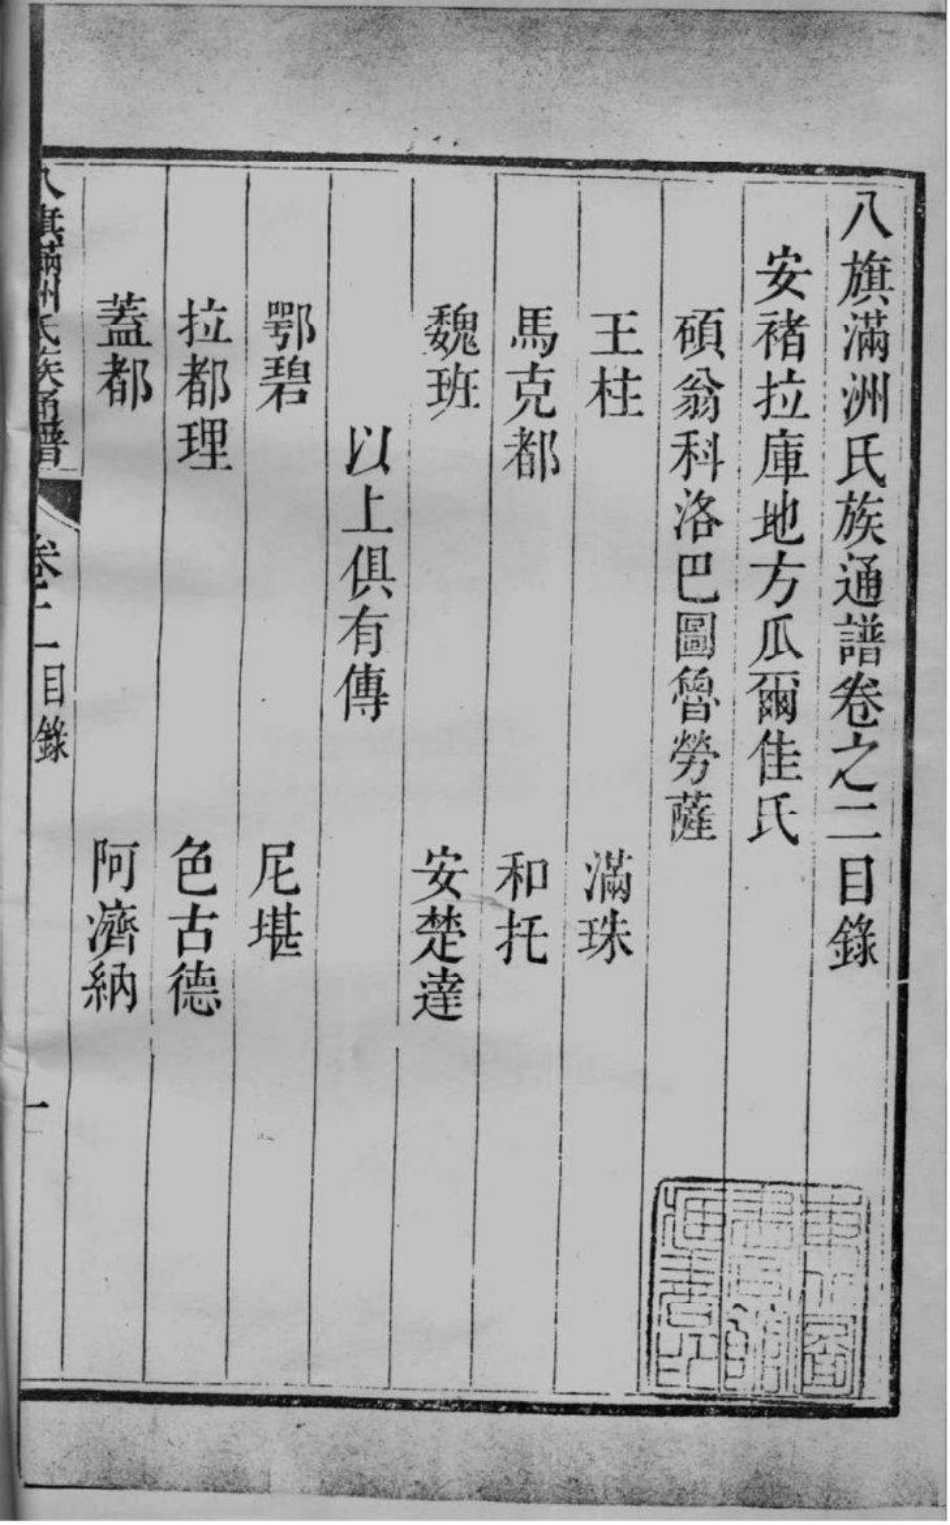 八旗滿洲氏族通譜卷之二目錄
安褚拉庫地方瓜爾佳氏
碩翁科洛巴圖魯勞薩
王柱 滿珠
馬克都 和托
魏班 安楚達
以上俱有傳
鄂碧 尼堪
拉都理 色古德
蓋都 阿濟納
八旗滿洲氏族通譜 卷之二目錄 一